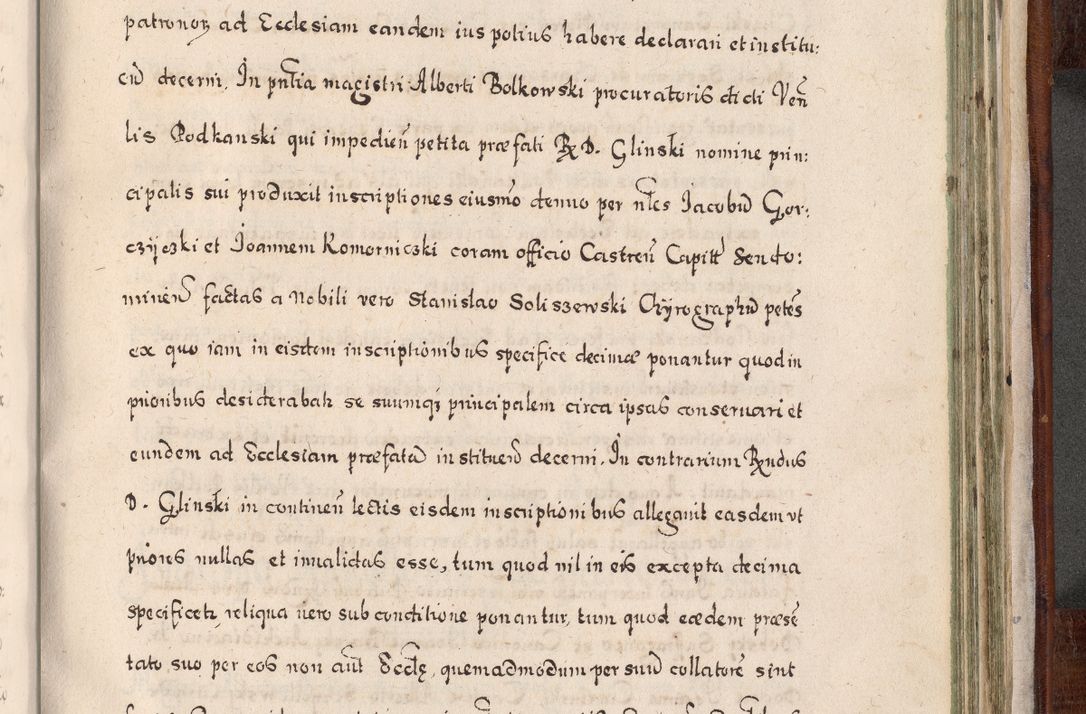 patronoꝝ ad Ecclesiam eandem ius potius habere declarari et institu:
eũ decerni. In pñtia magistri Alberti Bolkowski procuratoris dicti Veñ
lis Podkanski qui impedień petita præfati R. D. Glinski nomine prin:
cipalis sui produxit inscriptiones eiusmo denuo per nłes Jacobũ Gor:
czÿczki et Joannem Komorniczki coram officio Castreñ Capitł Sendo:
mireñ factas a Nobili vero Stanislao Soliszewski Chÿrographũ petẽs
ex quo iam in eisdem inscriptionibus specifice decimæ ponantur quod in
prioribus desiderabatʳ se suumqꝫ principalem circa ipsas conseruari et
eundem ad Ecclesiam præfatã instituẽũ decerni. In contrarium Rndus
D. Glinski in contineñ lectis eisdem inscriptionibus allegauit easdem vt
priores nullas et inualidas esse, tum quod nil in eis excepta decima
specificetʳ, reliqua uero sub conditione ponantur, tum quod eædem præsẽ
tato suo per eos non aũt Ecclę, quemadmodum per suũ collatorẽ sint